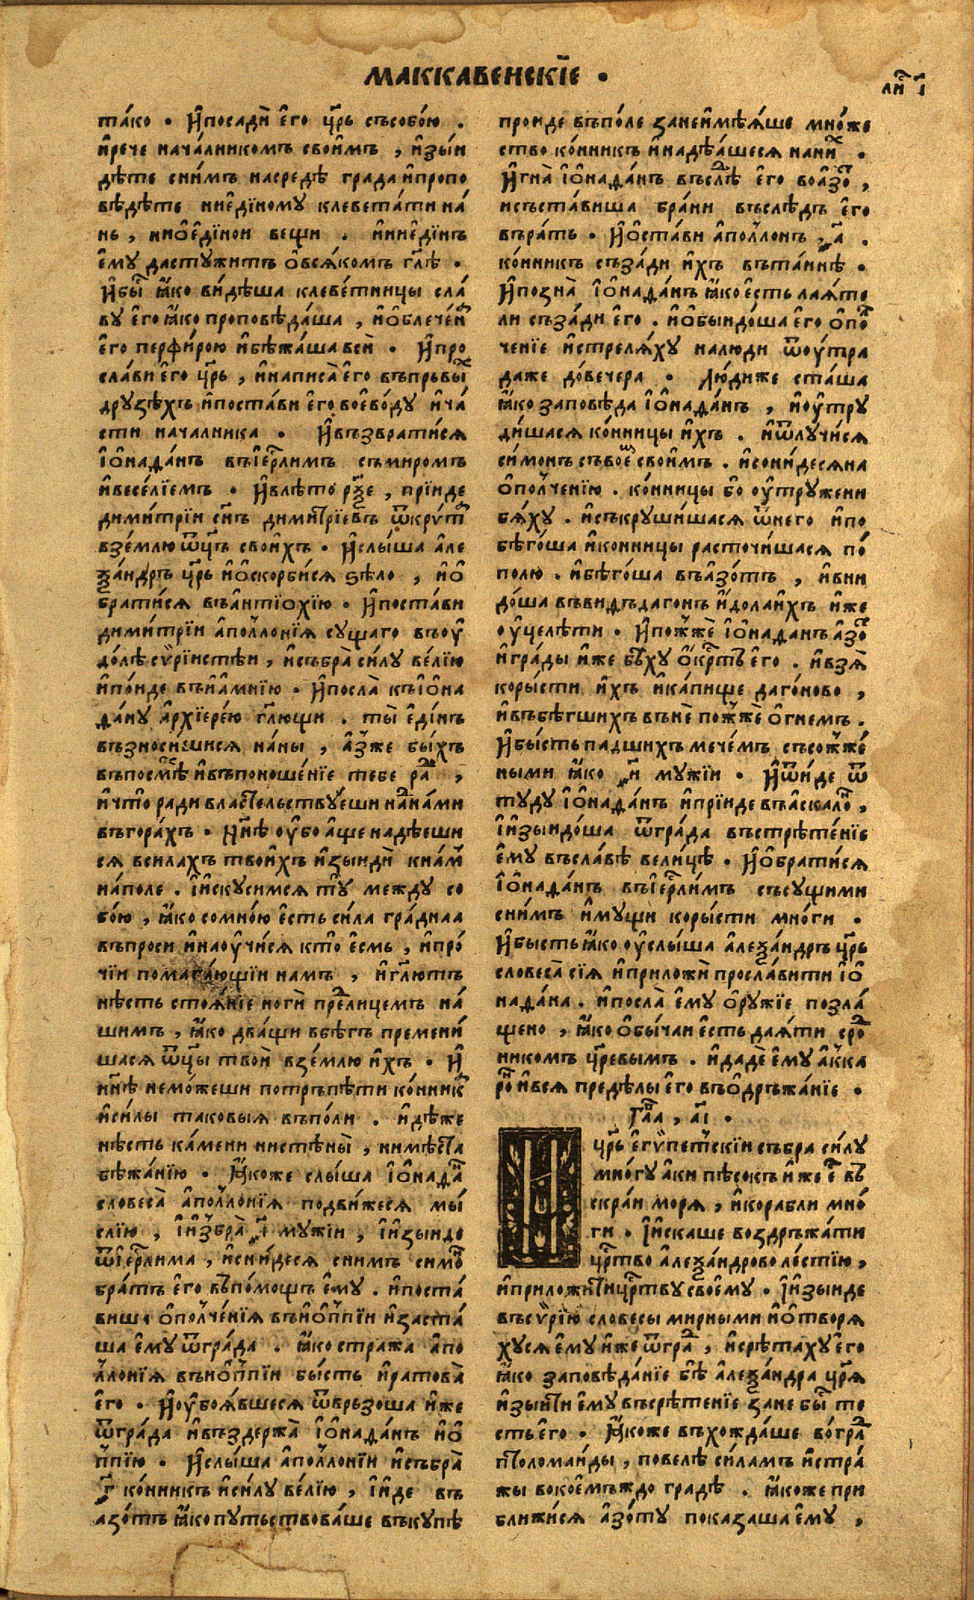 МАККАВЕИСКІ́Е .
ли҆ⷭ і҃
та́ко . И҆посадѝ є҆го̀ цр҃ь съсобо́ю .
и҆рече нача́лникомъ свои҆мъ , и҆зы́и
дѣте сни́мъ насредѣ̀ града и҆пропо
вѣдѣте ниє҆ди́ному клевета́ти на́
нь , нио҆є҆ди́нои вещи . и҆ниє҆ди́нъ
є҆му дастужитъ о҆вся́комъ гл҃ѣ .
И҆бы̀ⷭ ꙗ҆ко ви́дѣша клеве́тницы сла́
ву є҆го ꙗ҆ко проповѣда́ша , и҆о҆блече́нⷩ
є҆го перфи́рою и҆бѣжа́ша всѝ . И҆про
сла́ви є҆го цр҃ь , и҆написа̀ є҆го въпръвыⷯ
друзѣхъ и҆поста́ви є҆го воє҆во́ду и҆ча́
сти началника . И҆възврати́ся
і҆ѡ҆нада́нъ въі҆єрⷭ҇лимъ съмиромъ
и҆весе́лїемъ . И҆влѣ́то рѯ҃е , прїи́де
дими́трїи сн҃ъ дими́трїевъ ѿкри́тⷭ
взе́млю ѿц҃ъ свои́хъ . И҆слы́ша а҆ле
ѯа́ндръ цр҃ь и҆о҆скорби́ся ѕѣло , и҆о҆
брати́ся въа҆нтїо҆хі́ю . И҆поста́ви
дими́трїи а҆полло́нїя су́щаго въоу҆
до́лѣ сѵ҆рі́истѣи , и҆събра̀ си́лу ве́лїю
и҆по́иде въи҆а҆мні́ю . И҆посла̀ къі҆ѡ҆на
да́ну а҆рхїере́ю гл҃ющи . ты̀ є҆ди́нъ
възноси́шися на́ны , а҆́зже бы́хъ
въпосмѣⷯ и҆въпоноше́нїе тебе раⷣ ,
и҆что̀ ради власте́льствуеши на́нами
въгора́хъ . Нн҃ѣ оу҆бо а҆ще надѣеши
ся всилахъ твои́хъ и҆зыидѝ кна́мⷨ
на́поле . і҆и҆скусимся ту̀ между со
бо́ю , ꙗ҆ко сомно́ю є҆сть си́ла гра́днаа
въпроси и҆наоу҆чи́ся кто̀ є҆смь , и҆про́
чїи помага́ющїи намъ , и҆гл҃ютъ
нѣсть стоя́нїе ногѝ преⷣлицемъ на́
шимъ , ꙗ҆ко два́щи вбѣгъ премени́
шася ѿцы̀ твоѝ взе́млю и҆хъ . И҆
нн҃ѣ немо́жеши потръпѣ́ти ко́нникⷦ
и҆си́лы такови́я въпо́ли . и҆дѣ́же
нѣсть ка́мени нистѣны̀ , нимѣ́ста
бѣжа́нїю . Ꙗ҆коже слы́ша і҆ѡ҆нада́ⷩ
словеса̀ а҆полло́нїя подви́жеся мы́
слїю , і҆и҆збра̀ ҂і҃ мужїи , і҆и҆зы́идо
ѿі҆єрⷭ҇лима , и҆сни́деся снимъ симоⷩ
братъ є҆го въпо́мощъ є҆му . и҆поста́
више о҆полче́нїя въи҆о҆ппі́и и҆заста́
ша є҆му ѿгра́да . ꙗ҆ко стража а҆по
лло́нїя въи҆о҆ппі́и бы́сть и҆ратова̀
є҆го . И҆оу҆боя́вшеся ѿврьзоша и҆же
ѿгра́да и҆въздержа̀ і҆ѡ҆нада́нъ и҆о҆
ппі́ю . И҆слы́ша а҆полло́нїи и҆събра̀
҂г҃ ко́нникъ и҆си́лу ве́лїю , і҆и҆де въ
азо́тъ ꙗ҆ко путьствова́ше въку́пѣ
проиде въпо́ле занеи҆мѣя́ше мно́же
ство ко́нникъ и҆надѣ́ашеся наниⷯ .
И҆гна̀ і҆ѡ҆нада́нъ въслѣⷣ є҆го воа҆зоⷮ ,
и҆съста́виша бра́ни въслѣ́дъ є҆го
въра́ть . И҆о҆ста́ви а҆поллонъ ҂а҃ .
ко́нникъ съза́ди и҆́хъ въта́инѣ .
И҆позна̀ і҆ѡ҆нада́нъ ꙗ҆ко є҆сть лая́те
ли съза́ди є҆го . и҆о҆быидо́ша є҆го о҆поⷧ
че́нїе и҆стреля́ху налюди ѿоу҆́тра
даже до́вечера . Лю́диже ста́ша
ꙗ҆ко заповѣда і҆ѡ҆нада́нъ , и҆оу҆тру
ди́шася ко́нницы и҆хъ . и҆ѿлучи́ся
си́монъ съвоⷤ свои́мъ . и҆сони́десяна
о҆полче́нїю . ко́нницы бо оу҆тружени
бя́ху . и҆съкруши́шася ѿнего и҆по
бѣго́ша и҆ко́нницы расточи́шася по́
полю . и҆бѣго́ша въа҆зо́тъ , и҆вни
до́ша въвидъдагонъ и҆́долаи҆хъ и҆же
оу҆целѣти . И҆пожжѐ і҆ѡ҆наданъ а҆зоⷮ
и҆гра́ды и҆же бѣ́ху о҆кⷭртъ є҆го . и҆взя̀
коры́сти и҆хъ и҆ка́пище даго́ново ,
и҆въбѣгшихъ вънѐ пожжѐ о҆гнемъ .
И҆бы́сть па́дшихъ мече́мъ съсожже́
ными ꙗ҆ко ҂и҃ му́жїи . И҆ѿи́де ѿ
ту́ду і҆ѡ҆нада́нъ и҆прїи́де въа҆скалоⷩ ,
і҆и҆зыидо́ша ѿгра́да въстрѣте́нїе
є҆му въсла́вѣ вели́цѣ . И҆о҆брати́ся
і҆ѡ҆нада́нъ въі҆єрⷭ҇ли́мъ съсу́щими
сни́мъ и҆му́щи коры́сти мно́ги .
И҆бысть ꙗ҆ко оу҆слы́ша а҆леѯа́ндръ цр҃ь
словеса̀ сїя̀ и҆приложѝ просла́вити і҆ѡ҆
нада́на . и҆посла̀ є҆му о҆ружїе позла́
щено , ꙗ҆ко о҆бы́чаи є҆сть дая́ти сроⷣ
никомъ цр҃евымъ . и҆дадѐ є҆му а҆кка
роⷩ и҆вся предѣлы є҆го въо҆дръжа́нїе .
Гл҃а , а҃і .
И цр҃ь є҆гѵ҆пе́тскїи събра си́лу
мно́гу а҆ки пѣсокъ и҆же єⷭ въ
скра́и мо́ря , и҆кора́бли мно́
ги . і҆и҆скаше воздръжа́ти
црⷭ҇тво а҆леѯа́ндрово ло́стїю ,
и҆приложи́ти црⷭ҇тву своє҆му . і҆и҆зы́иде
въсѵ҆рі́ю словесы мирными и҆о҆творя́
хуся є҆му и҆же ѿграⷣ , и҆срѣтаху є҆го
ꙗ҆ко заповѣ́данїе бѣ̀ а҆леѯа́ндра цр҃я
и҆зыи́ти є҆му въсрѣтенїе зане бы̀ⷭ те
сть є҆го . Ꙗ҆коже въхожда́ше во́граⷣ
птоломаи́ды , повелѣ̀ си́ламъ и҆стра́
жы вокое́мъждо градѣ̀ . ꙗ҆коже при
ближи́ся а҆зо́ту показаша є҆му ,